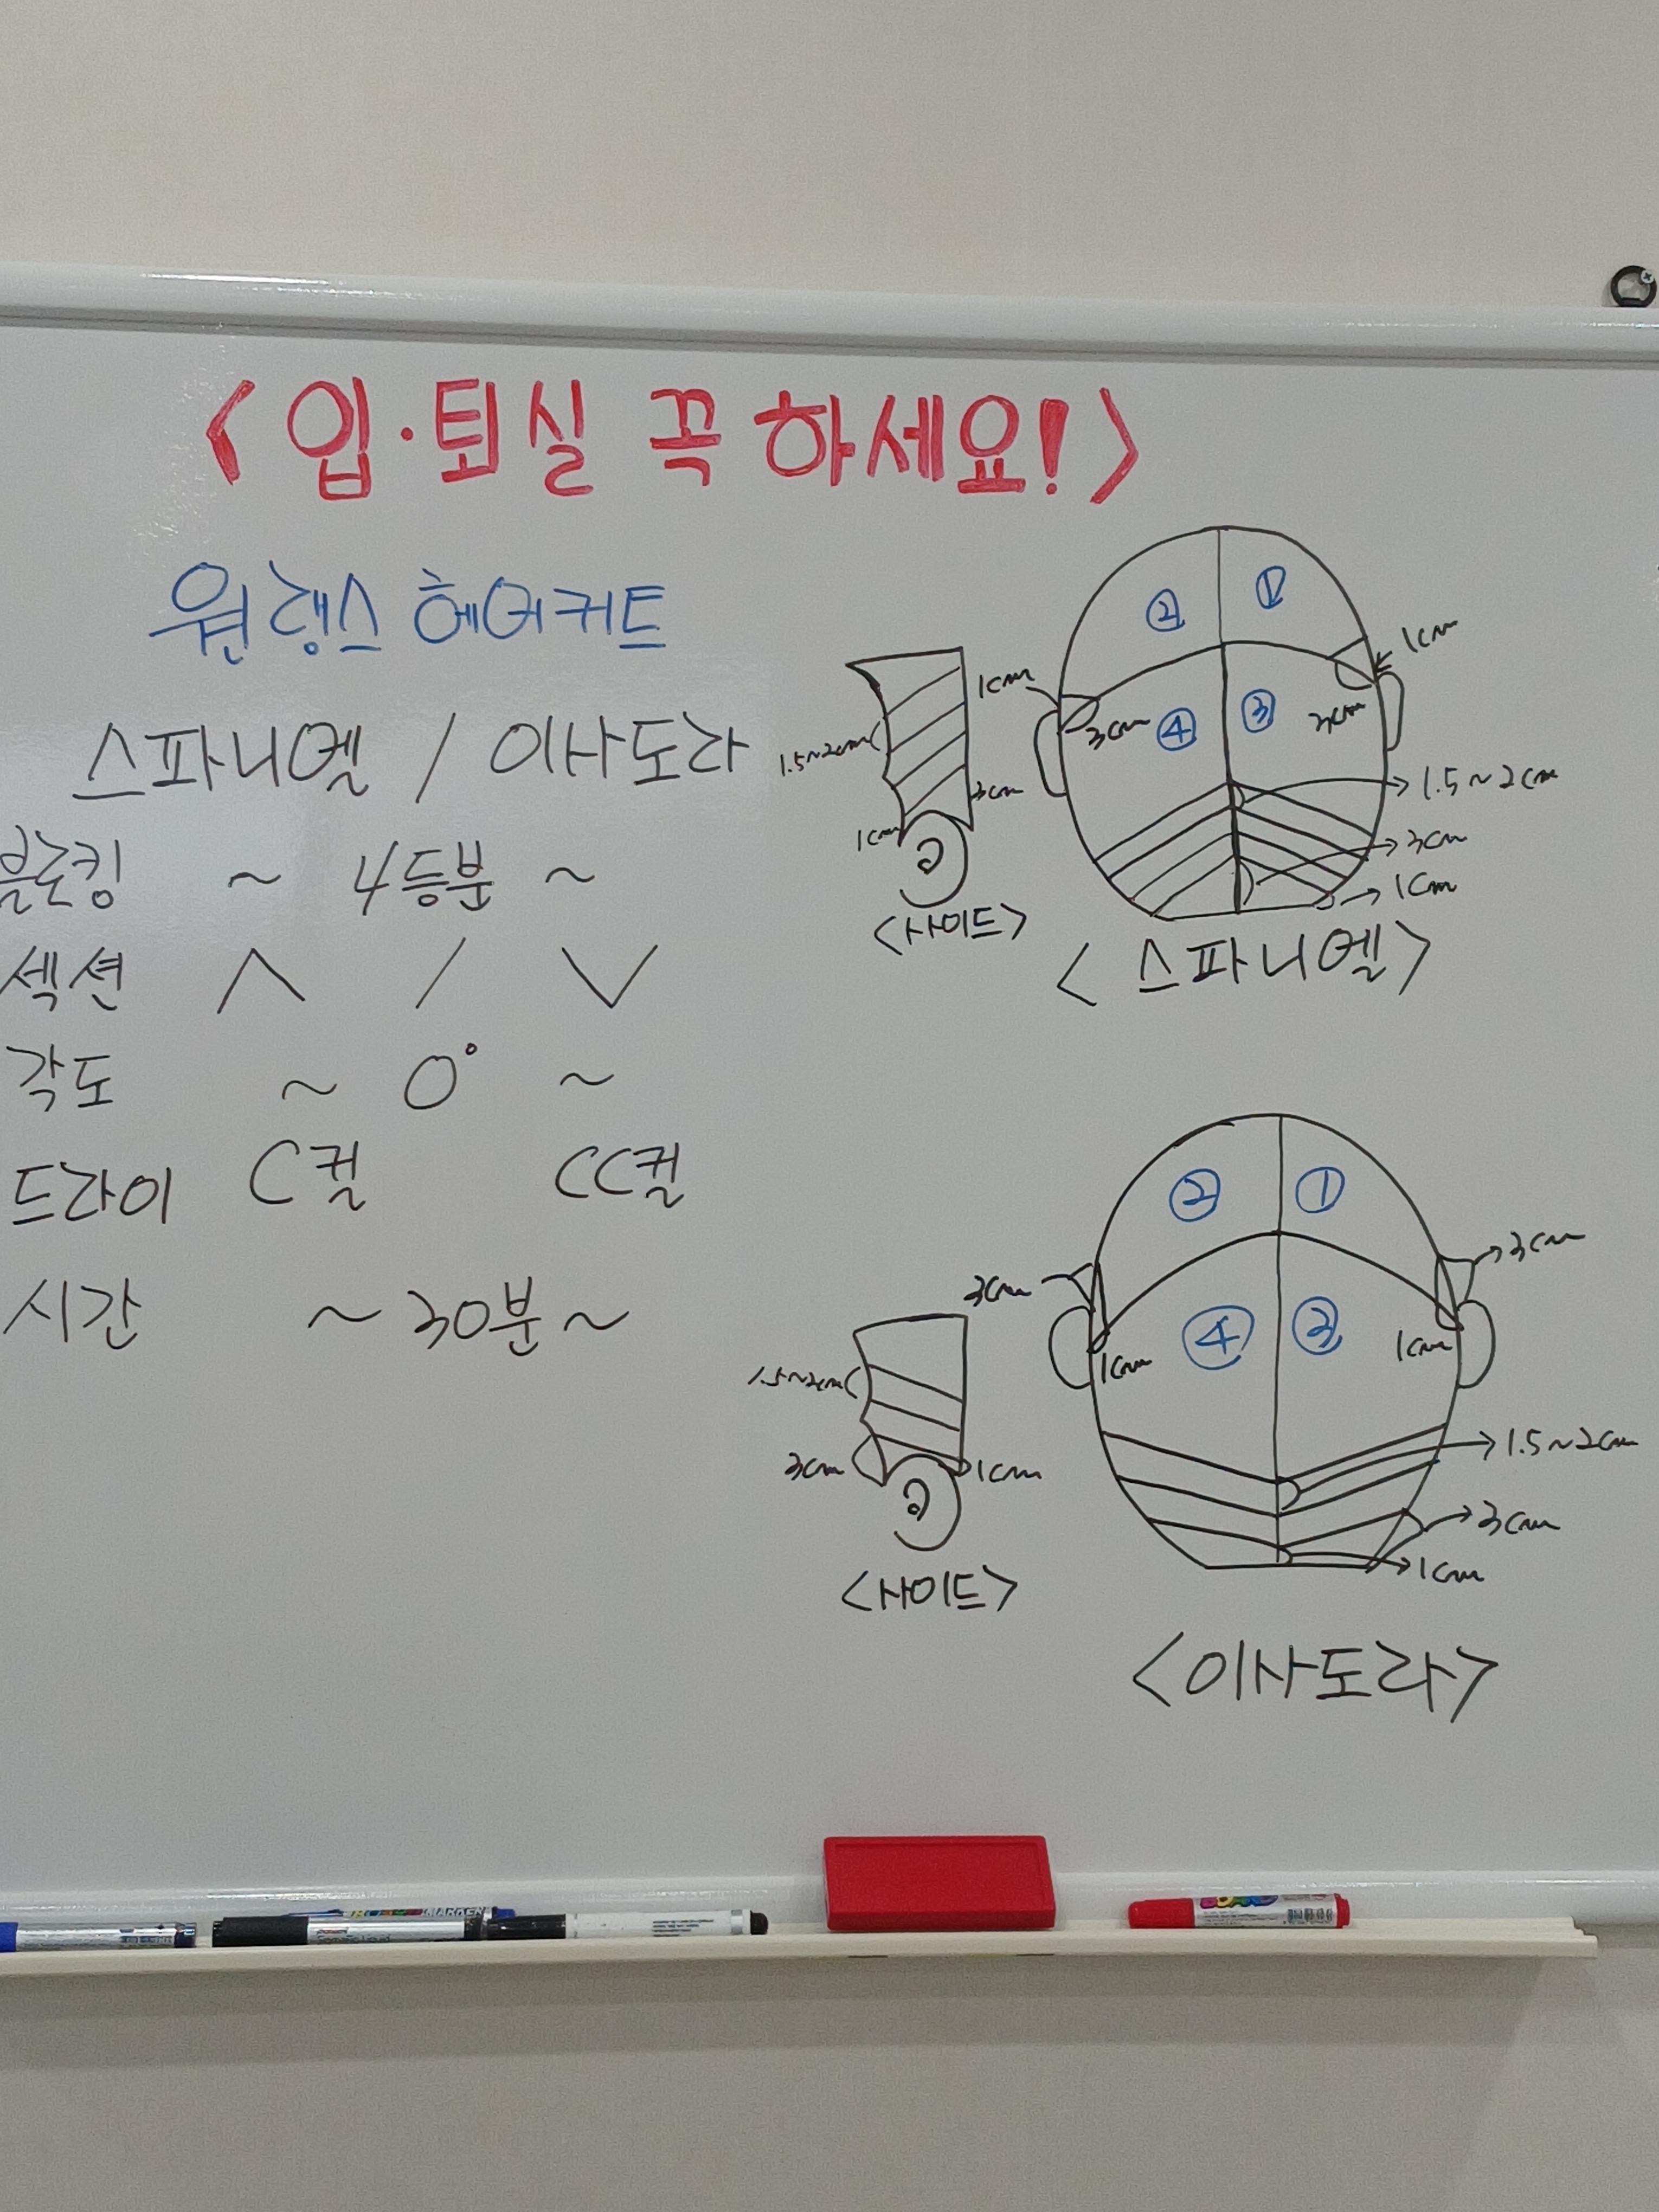 <입·퇴실 꼭 하세요!>
원랭스 헤어커트
스파니엘 / 이사도라
블로킹 ~ 4등분 ~
섹션 ∧ / ∨
각도 ~ 0° ~
드라이 C컬 CC컬
시간 ~ 30분 ~
② ①
1cm 1cm
3cm ④ ③ 3cm
1.5~2cm
3cm
1cm
<사이드>
1.5~2cm
3cm
1cm
<스파니엘>
② ①
3cm 3cm
④ ③
1cm 1cm
1.5~2cm
3cm 1cm
<사이드>
1.5~2cm
3cm
1cm
<이사도라>
BOARD
MARKER